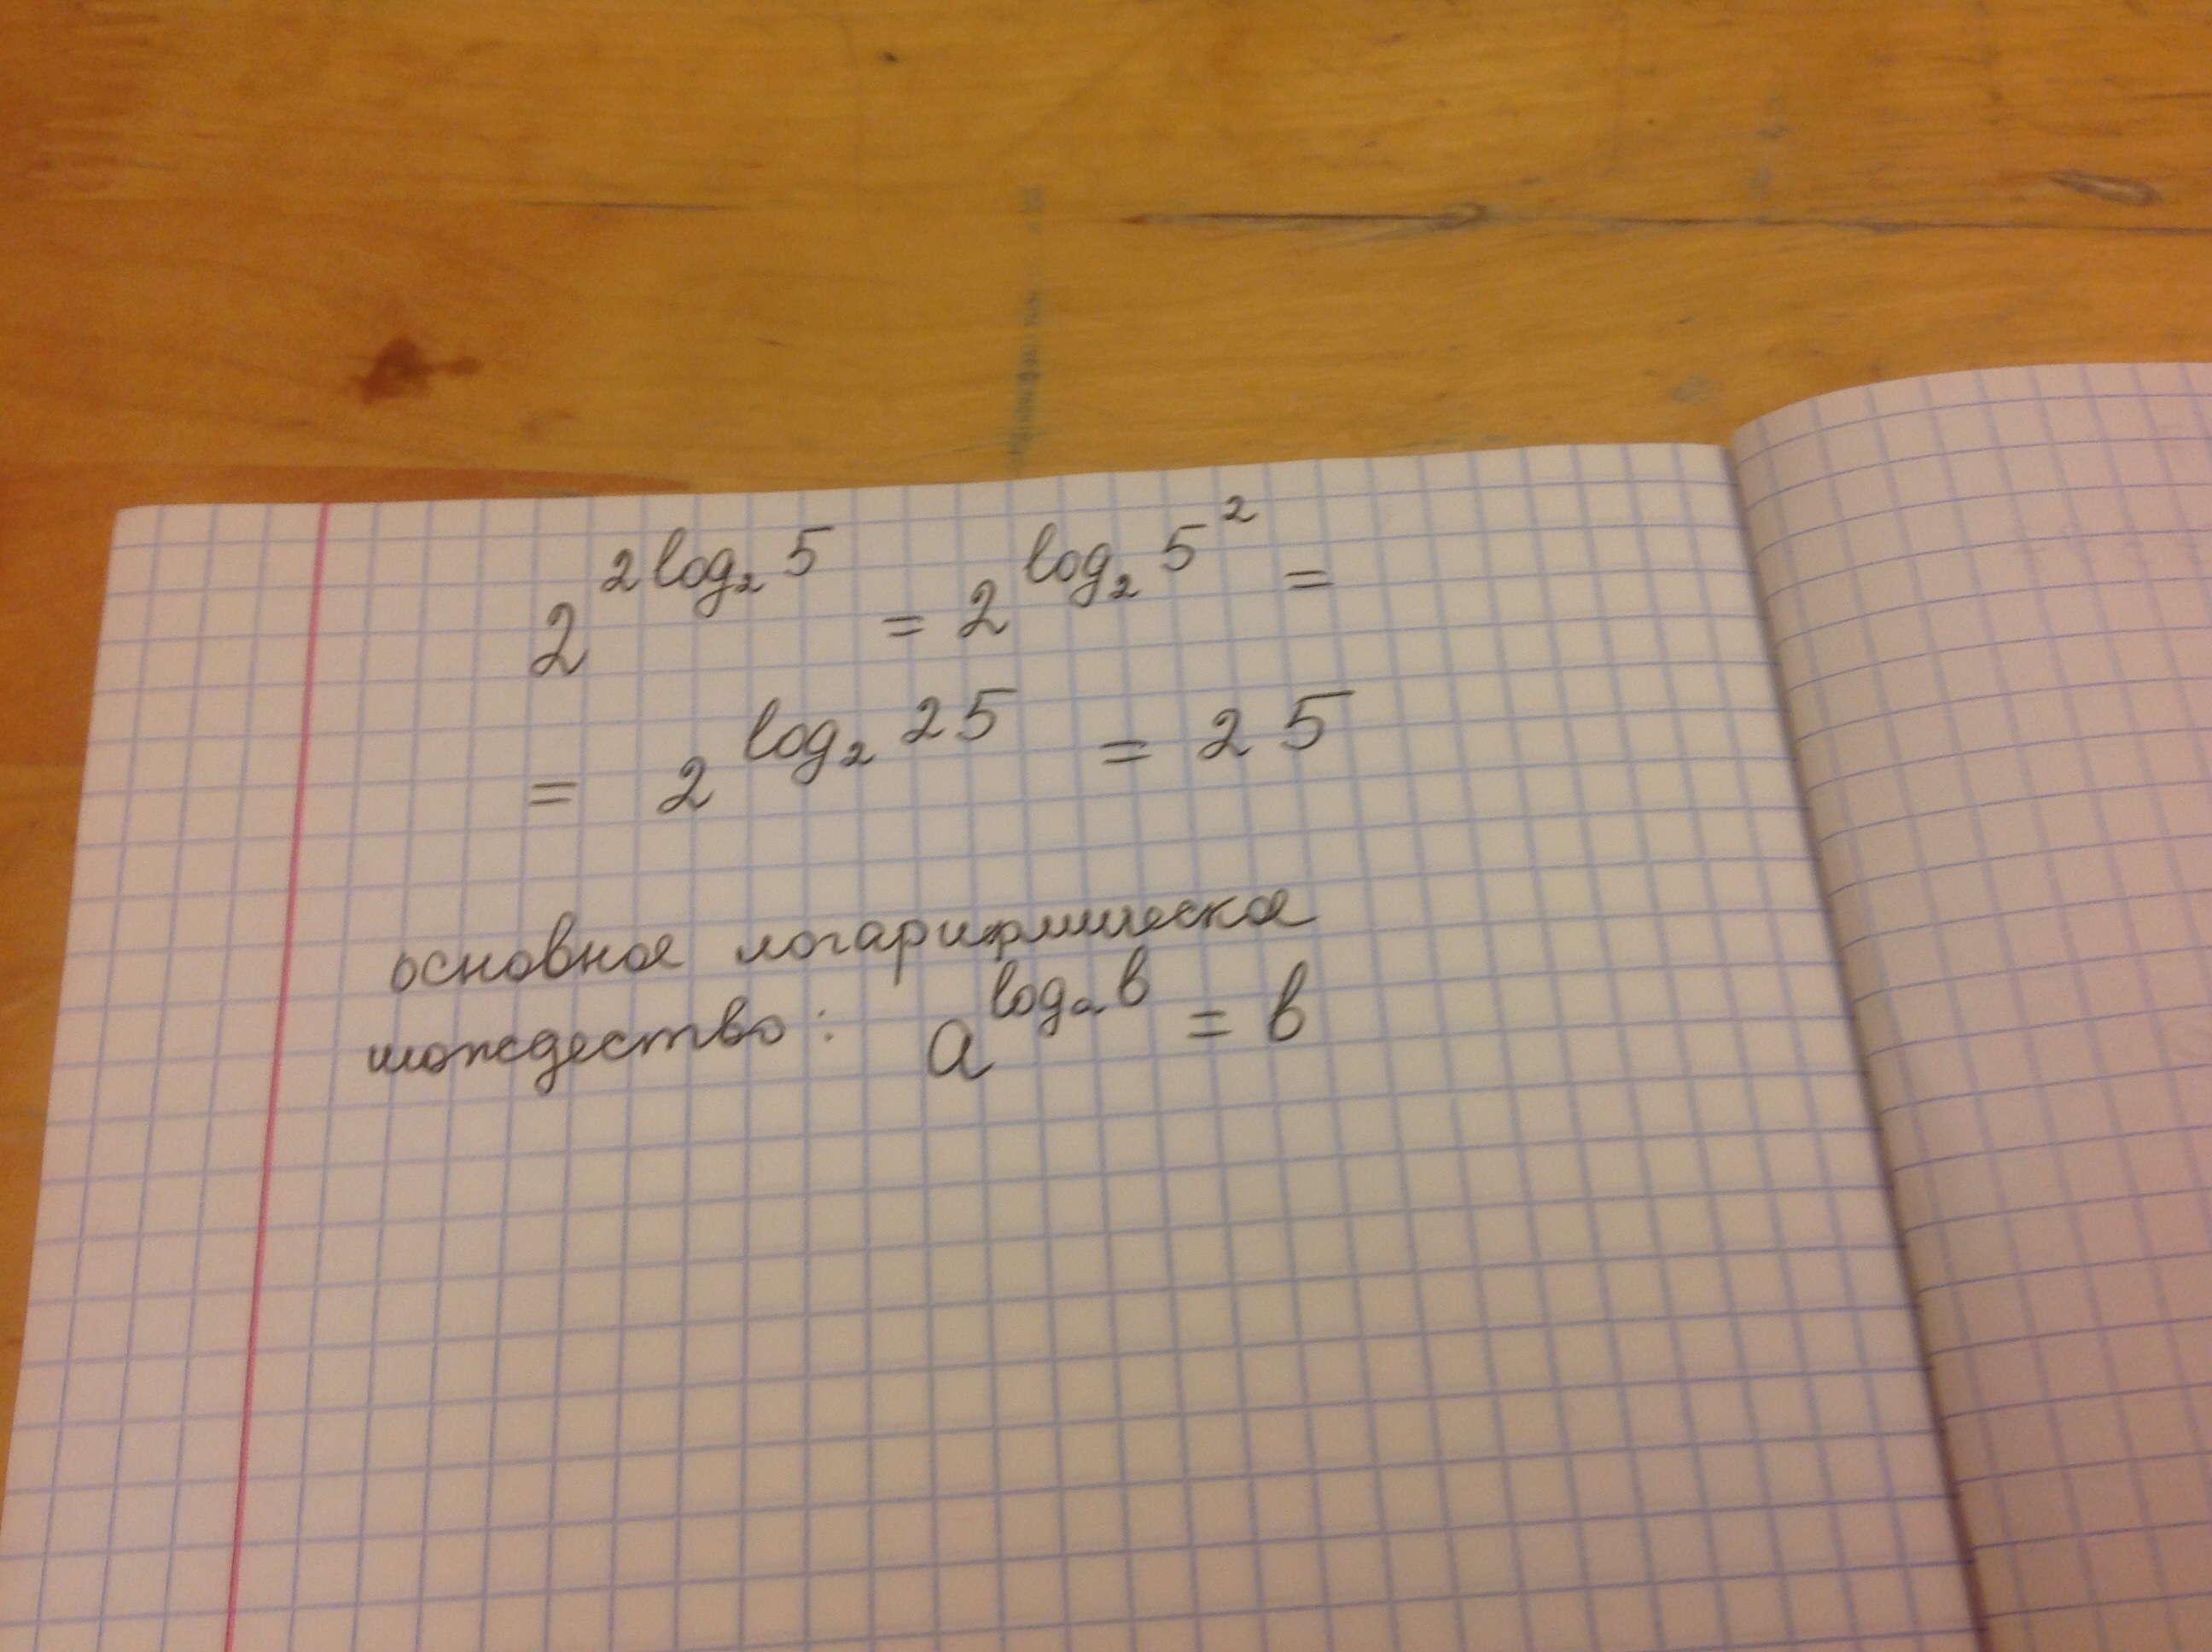 2^{2log_2 5} = 2^{log_2 5^2} =
= 2^{log_2 25} = 25
основное логарифмическое
тождество: a^{log_a b} = b